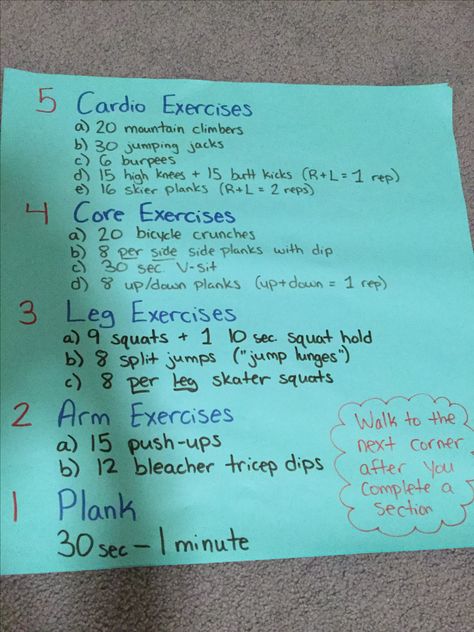 5 Cardio Exercises
a) 20 mountain climbers
b) 30 jumping jacks
c) 6 burpees
d) 15 high knees + 15 butt kicks (R+L = 1 rep)
e) 16 skier planks (R+L = 2 reps)
4 Core Exercises
a) 20 bicycle crunches
b) 8 per side side planks with dip
c) 30 sec. V-sit
d) 8 up/down planks (up+down = 1 rep)
3 Leg Exercises
a) 9 squats + 1 10 sec. squat hold
b) 8 split jumps ("jump lunges")
c) 8 per leg skater squats
2 Arm Exercises
a) 15 push-ups
b) 12 bleacher tricep dips
1 Plank
30 sec - 1 minute
Walk to the
next corner
after you
complete a
section